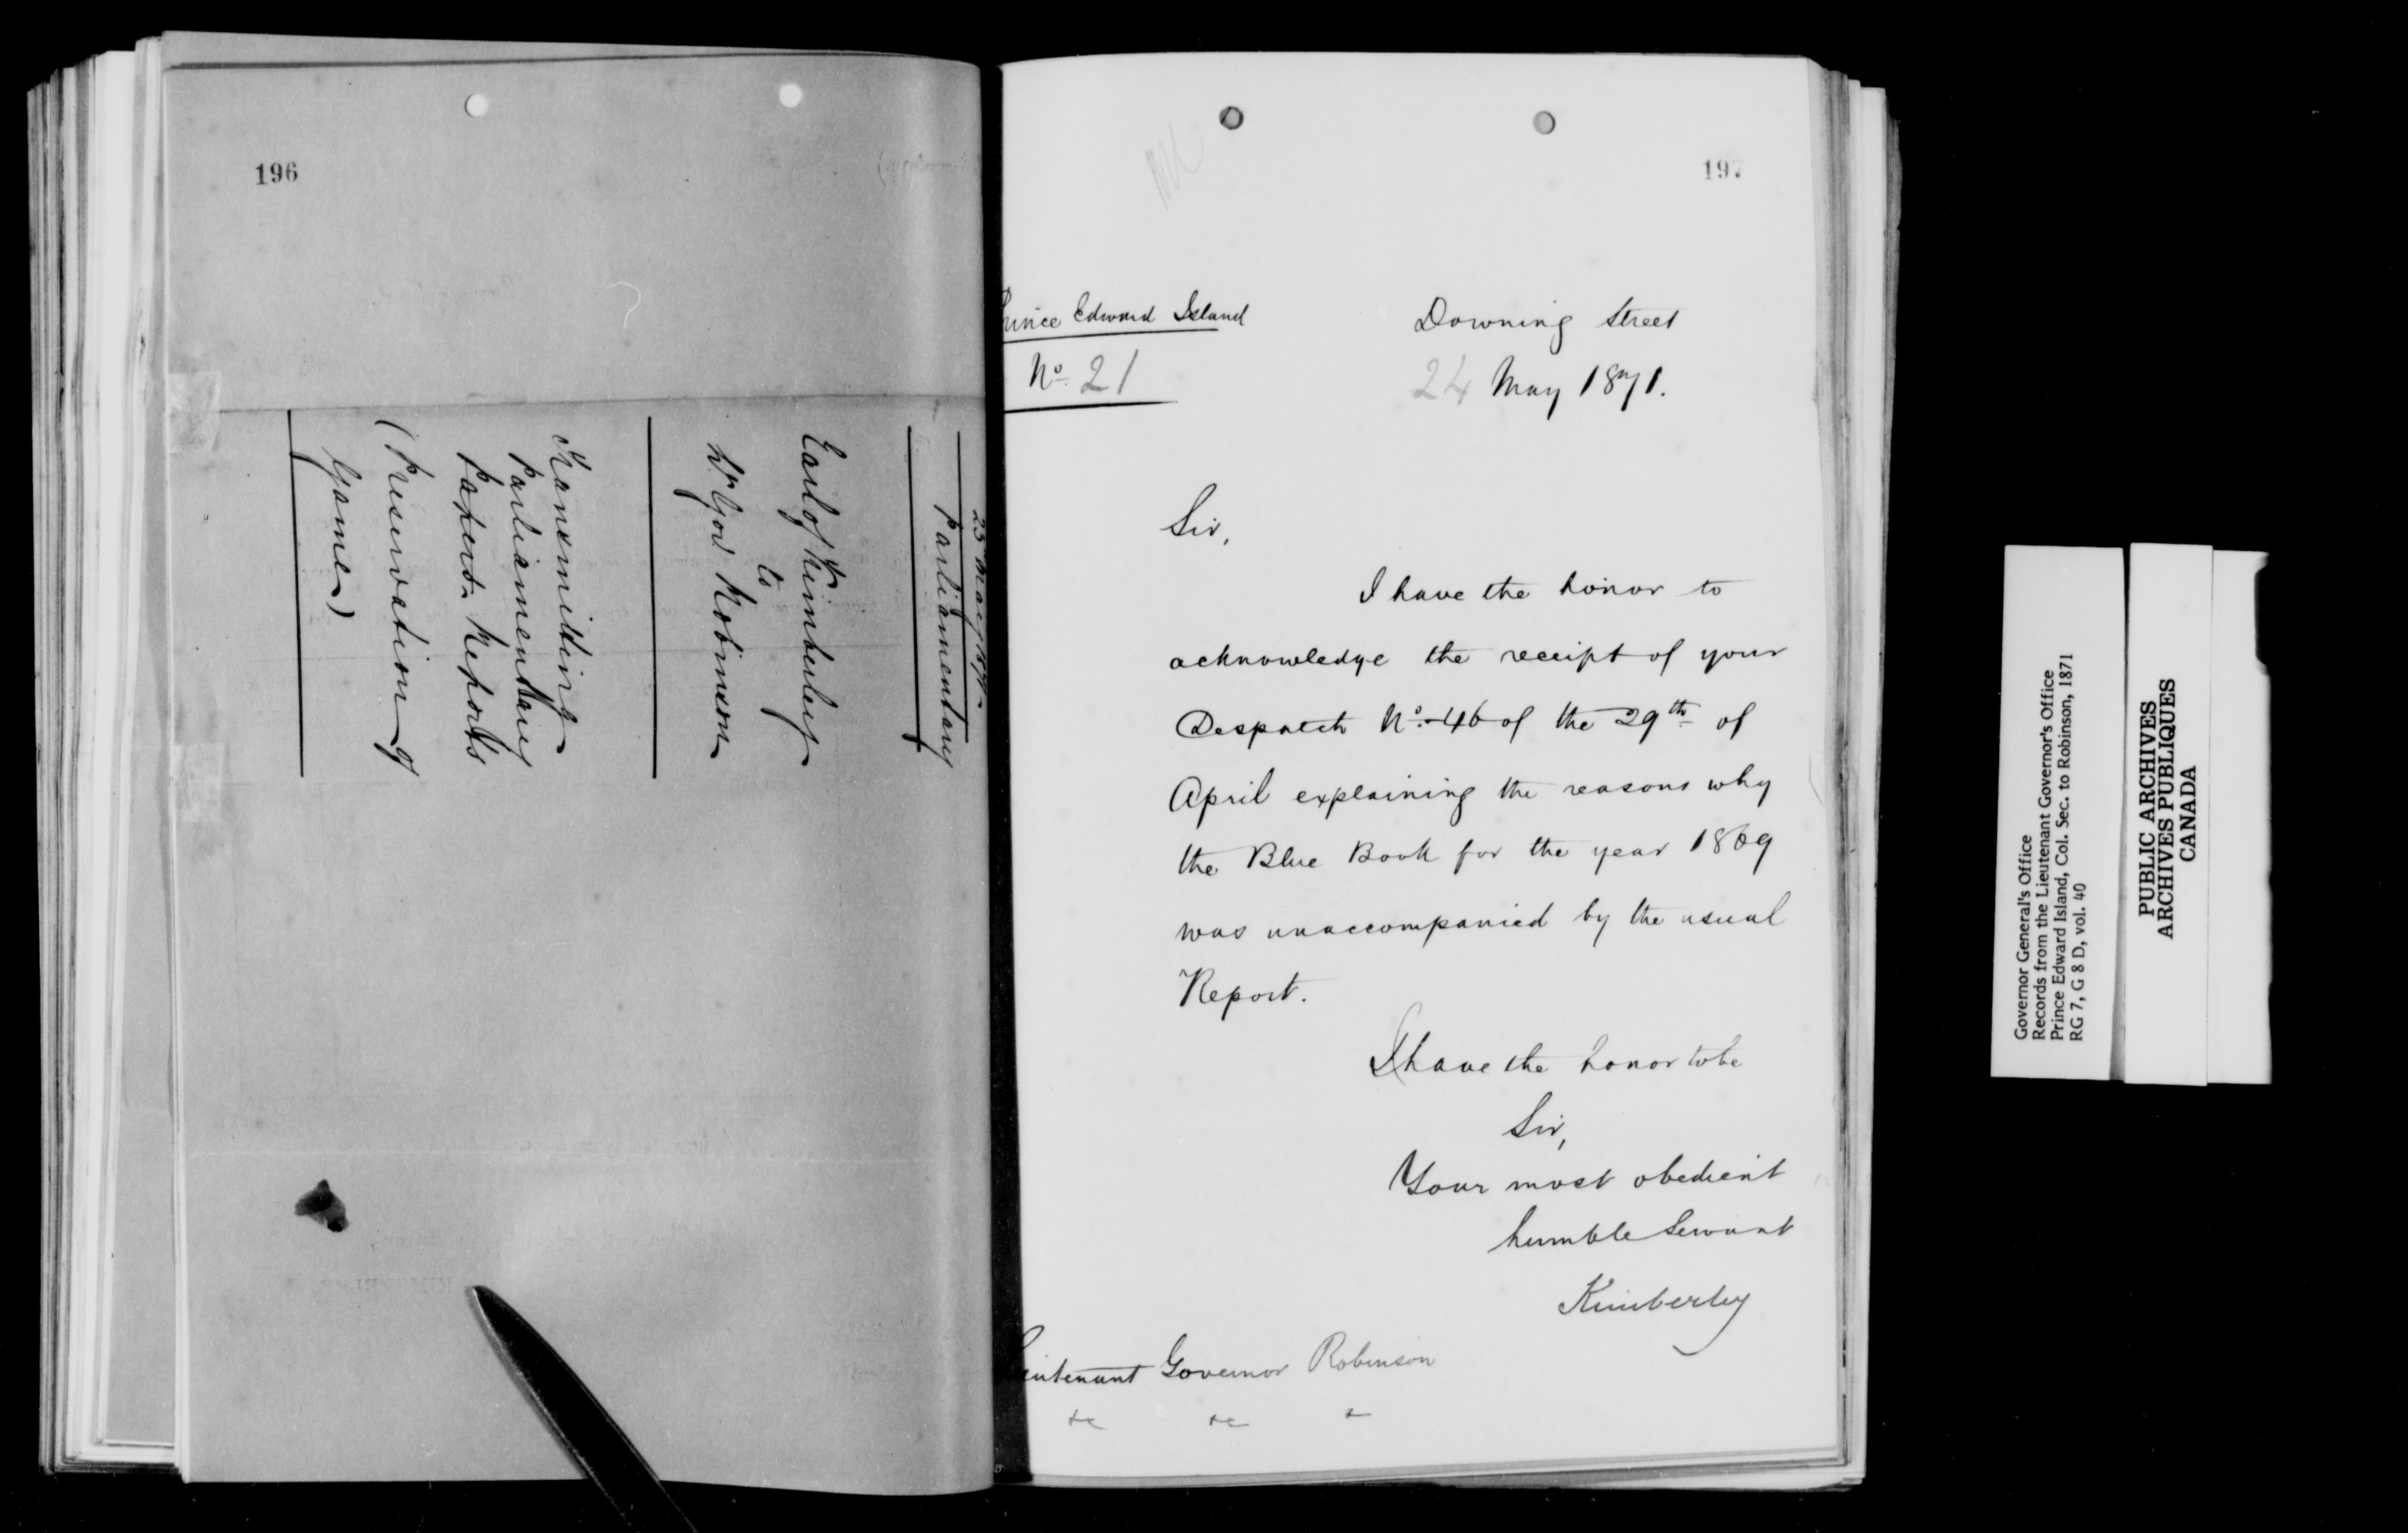 196
23 May 1871
Parliamentary
Earl of Kimberley
to
Lt Gov Robinson
Transmitting
Parliamentary
Papers. Reports
(Preservation of
Game)
197
Prince Edward Island
No. 21
Downing Street
24 May 1871.
Sir,
I have the honor to
acknowledge the receipt of your
Despatch No. 46 of the 29th of
April explaining the reasons why
the Blue Book for the year 1869
was unaccompanied by the usual
Report.
I have the honor to be
Sir,
Your most obedient
humble Servant
Kimberley
Lieutenant Governor Robinson
&c &c &
Governor General's Office
Records from the Lieutenant Governor's Office
Prince Edward Island, Col. Sec. to Robinson, 1871
RG 7, G 8 D, vol. 40
PUBLIC ARCHIVES
ARCHIVES PUBLIQUES
CANADA